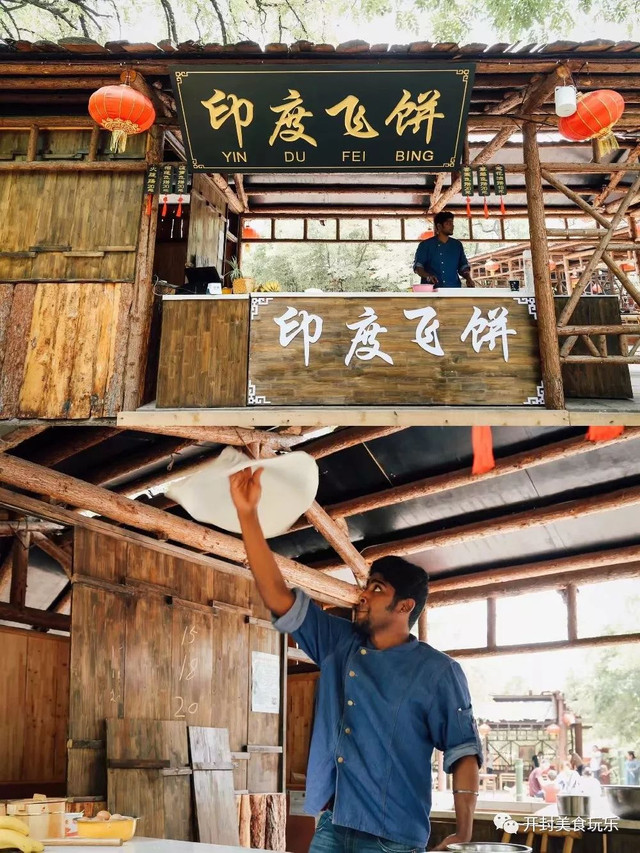 印度飞饼
YIN DU FEI BING
印度飞饼
15
18
20
开封美食玩乐